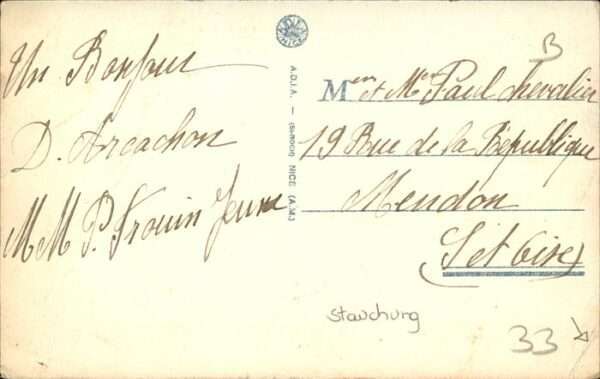 Un Bonjour
D. Arcachon
MM P. Frouin Jeune
A.D.I.A. — NICE (A.M.)
B
Mer et Mme Paul Chevalier
19 Rue de la République
Meudon
(S et Oise)
Stauchung
33